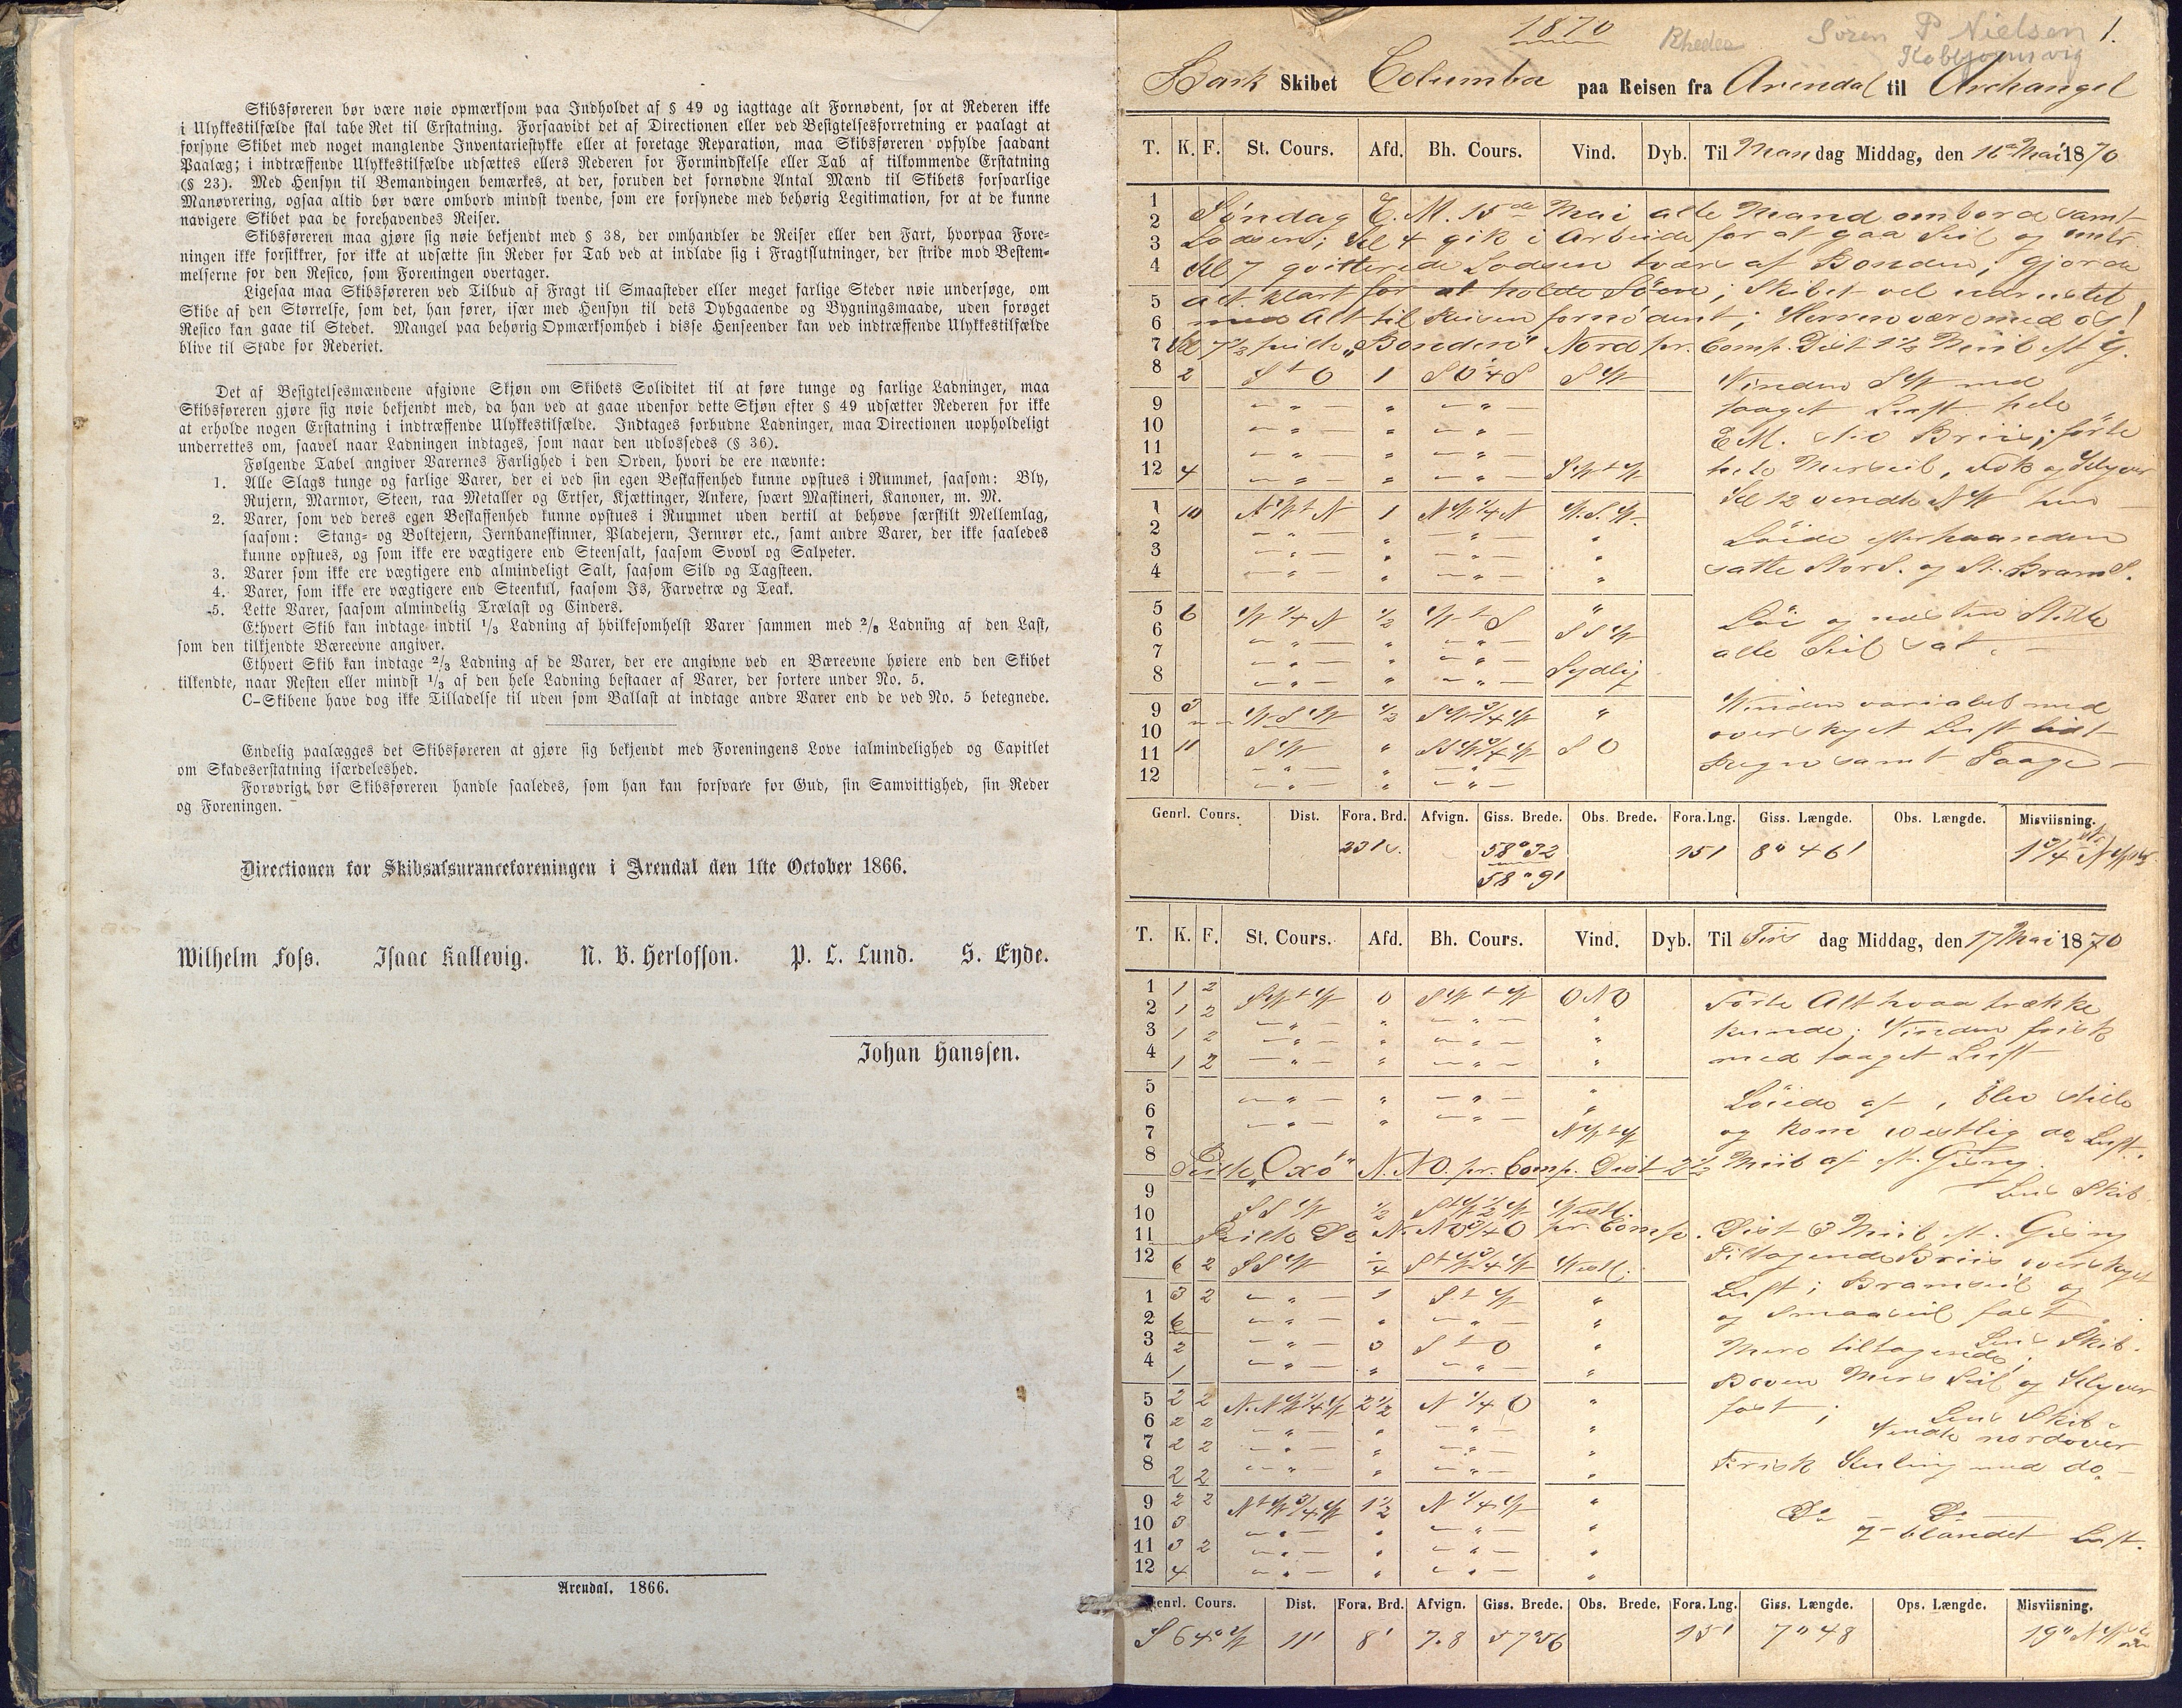 Skibsføreren bør være nøie opmærksom paa Indholdet af § 49 og iagttage alt Fornødent, for at Rederen ikke
i Ulykkestilfælde skal tabe Ret til Erstatning. Forsaavidt det af Directionen eller ved Besigtelsesforretning er paalagt at
forsyne Skibet med noget manglende Inventariestykke eller at foretage Reparation, maa Skibsføreren opfylde saadant
Paalæg; i indtræffende Ulykkestilfælde udsættes ellers Rederen for Formindskelse eller Tab af tilkommende Erstatning
(§ 23). Med Hensyn til Bemandingen bemærkes, at der, foruden det fornødne Antal Mænd til Skibets forsvarlige
Manøvrering, ogsaa altid bør være ombord mindst tvende, som ere forsynede med behørig Legitimation, for at de kunne
navigere Skibet paa de forehavendes Reiser.
Skibsføreren maa gjøre sig nøie bekjendt med § 38, der omhandler de Reiser eller den Fart, hvorpaa Fore-
ningen ikke forsikkrer, for ikke at udsætte sin Reder for Tab ved at indlade sig i Fragtslutninger, der stride mod Bestem-
melserne for den Resico, som Foreningen overtager.
Ligesaa maa Skibsføreren ved Tilbud af Fragt til Smaasteder eller meget farlige Steder nøie undersøge, om
Skibe af den Størrelse, som det, han fører, især med Hensyn til dets Dybgaaende og Bygningsmaade, uden forøget
Resico kan gaae til Stedet. Mangel paa behørig Opmærksomhed i disse Henseender kan ved indtræffende Ulykkestilfælde
blive til Skade for Rederiet.
Det af Besigtelsesmændene afgivne Skjøn om Skibets Soliditet til at føre tunge og farlige Ladninger, maa
Skibsføreren gjøre sig nøie bekjendt med, da han ved at gaae udenfor dette Skjøn efter § 49 udsætter Rederen for ikke
at erholde nogen Erstatning i indtræffende Ulykkestilfælde. Indtages forbudne Ladninger, maa Directionen uopholdeligt
underrettes om, saavel naar Ladningen indtages, som naar den udlossedes (§ 36).
Følgende Tabel angiver Varernes Farlighed i den Orden, hvori de ere nævnte:
1. Alle Slags tunge og farlige Varer, der ei ved sin egen Beskaffenhed kunne opstues i Rummet, saasom: Bly,
Rujern, Marmor, Steen, raa Metaller og Ertser, Kjættinger, Ankere, svært Maskineri, Kanoner, m. M.
2. Varer, som ved deres egen Beskaffenhed kunne opstues i Rummet uden dertil at behøve særskilt Mellemlag,
saasom: Stang- og Boltejern, Jernbaneskinner, Pladejern, Jernrør etc., samt andre Varer, der ikke saaledes
kunne opstues, og som ikke ere vægtigere end Steensalt, saasom Svovl og Salpeter.
3. Varer som ikke ere vægtigere end almindeligt Salt, saasom Sild og Tagsteen.
4. Varer, som ikke ere vægtigere end Steenkul, saasom Is, Farvetræ og Teak.
5. Lette Varer, saasom almindelig Trælast og Cinders.
Ethvert Skib kan indtage indtil 1/3 Ladning af hvilkesomhelst Varer sammen med 2/3 Ladning af den Last,
som den tilkjendte Bæreevne angiver.
Ethvert Skib kan indtage 2/3 Ladning af de Varer, der ere angivne ved en Bæreevne høiere end den Skibet
tilkendte, naar Resten eller mindst 1/3 af den hele Ladning bestaaer af Varer, der sortere under No. 5.
C-Skibene have dog ikke Tilladelse til uden som Ballast at indtage andre Varer end de ved No. 5 betegnede.
Endelig paalægges det Skibsføreren at gjøre sig bekjendt med Foreningens Love ialmindelighed og Capitlet
om Skadeserstatning isærdeleshed.
Forøvrigt bør Skibsføreren handle saaledes, som han kan forsvare for Gud, sin Samvittighed, sin Reder
og Foreningen.
Directionen for Skibsassuranceforeningen i Arendal den 1ste October 1866.
Wilhelm Foss. Isaac Kallevig. N. B. Herlofson. P. L. Lund. S. Eyde.
Johan Hanssen.
Arendal. 1866.
1870 Rheder Søren P Nielsen 1.
Bark Skibet Columba paa Reisen fra Arendal til Archangel
T. K. F. St. Cours. Afd. Bh. Cours. Vind. Dyb. Til Mandag Middag, den 16 Mai 1870
1 Søndag E. M. 15de Mai alle Mand ombord samt
2 Lodsen; Kl 4 gik i Arbeide for at gaa Seil og
3 Kl 7 qvitterede Lodsen tværs af Bonden; gjorde
4 alt klart for at holde Søen; Skibet vel
5 med Alt til Reisen fornødent; Herren være med os!
7 Kl 7½ peilte "Bonden" Nord pr. Comp. Dist 1½ Miil
8 2 S t O 1 SO ¼ S SW Vinden SW med
9 taaget Luft hele
10 E M. Briis; førte
11
12 4 SW t W hele Mersseil, Fok og Klyver
Kl 12 vendte NW
1 10 NW t N 1 NW ¼ N W.S.W.
2 Løide efterhaanden
3
4 satte StorS. og St. BramS.
5 6 W ¼ N ½ W t S " Løi og næsten Stille
6 SSW
7 alle Seil sat.
8 Sydlig
9 3 WSW ½ SW ¾ W " Vinden variabel med
10 overskyet Luft lidt
11 11 SW " SO
12 Regn samt Taage
Genrl. Cours. Dist. Fora. Brd. Afvign. Giss. Brede. Obs. Brede. Fora. Lng. Giss. Længde. Obs. Længde. Misviisning.
58° 32
58° 9'
15' 8° 46' 1¾
T. K. F. St. Cours. Afd. Bh. Cours. Vind. Dyb. Til Tirsdag Middag, den 17 Mai 1870
1 1 2 SW t W 0 SW t W ONO Førte Alt hvaa trække
2 1 2
3 1 2 kunde; Vinden frisk
4 1 2 med taaget Luft
5 Løiede af, blev stille
6
7 NW t W og kom vestlig do Luft.
8 Peilte "Oxö" N.NO. pr. Comp. Dist 2½ Miil af st. Gisng
9 Lens Skib
10 SSW ½ Vestl.
11 Peilte Do N.NO ¾ O pr. Comp. Dist 3 Miil st. Gisng
12 6 2 SSW ¼ Vestl. Tiltagende Briis overskyet
1 3 2 1 S. t W Luft; Bramseil og
2 6 og Smaaseil fast
3 2 3 S t O Lens Skib.
4 1 Mere tiltagende;
Boven Mers Seil og Klyver
5 2 2 N.NW ¼ W 2½ N ¼ O fast; Lens Skib
6 2 2 Vendte nordover
7 2 2
8 2 2 Frisk Kuling med do
9 2 2 N t W ¾ W 1½ N ¼ W
10 3 Do Do
11 3 2 og blandet Luft.
12 4
Genrl. Cours. Dist. Fora. Brd. Afvign. Giss. Brede. Obs. Brede. Fora. Lng. Giss. Længde. Ops. Længde. Misviisning.
S 64° W 11' 8' 7.8 57°56 15' 7° 48 19°